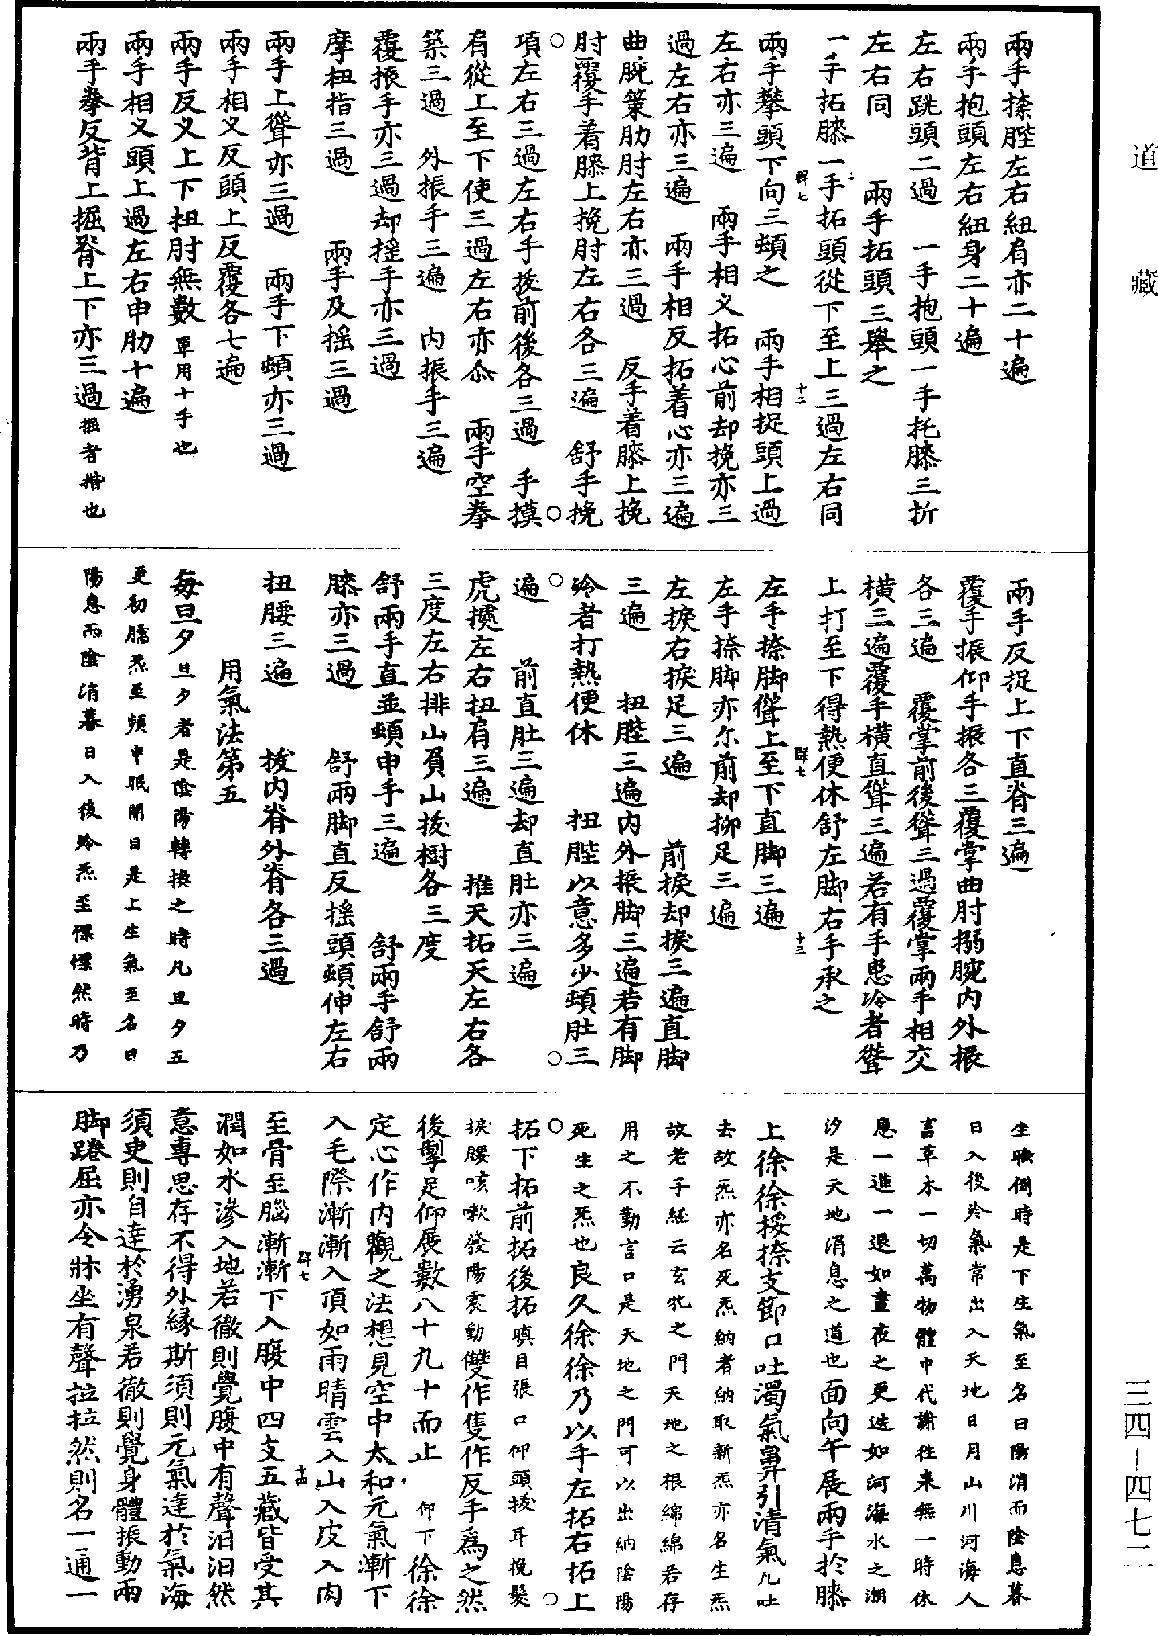 兩手捺䏶左右紐肩亦二十遍
兩手抱頭左右紐身二十遍
左右跣頭二過　一手抱頭一手托膝三折
左右同　兩手拓頭三舉之
一手拓膝一手拓頭從下至上三過左右同
兩手攀頭下向三頓之　兩手相捉頭上過
左右亦三遍　兩手相叉拓心前却挽亦三
過左右亦三遍　兩手相反拓着心亦三遍
曲腕築肋肘左右亦三過　反手着膝上挽
肘覆手着膝上挽肘左右各三遍　舒手挽
項左右三過左右手拔前後各三過　手摸
肩從上至下使三過左右亦尒　兩手空拳
築三過　外振手三遍　内振手三遍
覆振手亦三過却摇手亦三過
摩扭指三過　兩手及摇三過
兩手上聳亦三過　兩手下頓亦三過
兩手相叉反頭上反覆各七遍
兩手反叉上下扭肘無數單用十手也
兩手相叉頭上過左右申肋十遍
兩手拳反背上掘脊上下亦三過掘者揩也
兩手反捉上下直脊三遍
覆手振仰手振各三覆掌曲肘搦腕内外振
各三遍　覆掌前後聳三過覆掌兩手相交
橫三遍覆手橫直聳三遍若有手患冷者聳
上打至下得熱便休舒左脚右手承之
左手捺脚聳上至下直脚三遍
左手捺脚亦尔前却抑足三遍
左捩右捩足三遍　前捩却捩三遍直脚
三遍　扭䏶三遍内外振脚三遍若有脚
冷者打熱便休　扭䏶以意多少頓肚三
遍　前直肚三遍却直肚亦三遍
虎攄左右扭肩三遍　推天拓天左右各
三度左右排山負山拔樹各三度
舒兩手直並頓申手三遍　舒兩手舒兩
膝亦三過　舒兩脚直反摇頭頓伸左右
扭腰三遍　拔内脊外脊各三過
用氣法第五
每旦夕旦夕者是陰陽轉換之時凡旦夕五
更初曉炁至頻申眠開目是上生氣至名曰
陽息而陰消暮日入後冷炁至慄慄然時乃
生睡倒時是下生氣至名曰陽消而陰息暮
日入後冷氣常出入天地日月山川河海人
畜草木一切萬物體中代謝往来無一時休
息一進一退如晝夜之更迭如河海水之潮
汐是天地消息之道也面向午展兩手於膝
上徐徐按捺支節口吐濁氣鼻引清氣凡吐
去故炁亦名死炁納者納取新炁亦名生炁
故老子經云玄牝之門天地之根綿綿若存
用之不勤言口是天地之門可以出納陰陽
死生之炁也良久徐徐乃以手左拓右拓上
拓下拓前拓後拓瞋目張口仰頭拔耳挽髮
捩腰咳嗽發陽震動雙作隻作反手為之然
後掣足仰展數八十九十而止　仰下徐徐
定心作内觀之法想見空中太和元氣漸下
入毛際漸漸入頂如雨晴雲入山入皮入肉
至骨至腦漸漸下入腹中四支五藏皆受其
潤如水滲入地若徹則覺腹中有聲汨汨然
意專思存不得外緣斯須則元氣達於氣海
須臾則自達於湧泉若徹則覺身體振動兩
脚踡屈亦令牀坐有聲拉拉然則名一通一
群七　十二
群七　十三
群七　十四
道藏
三四—四七二